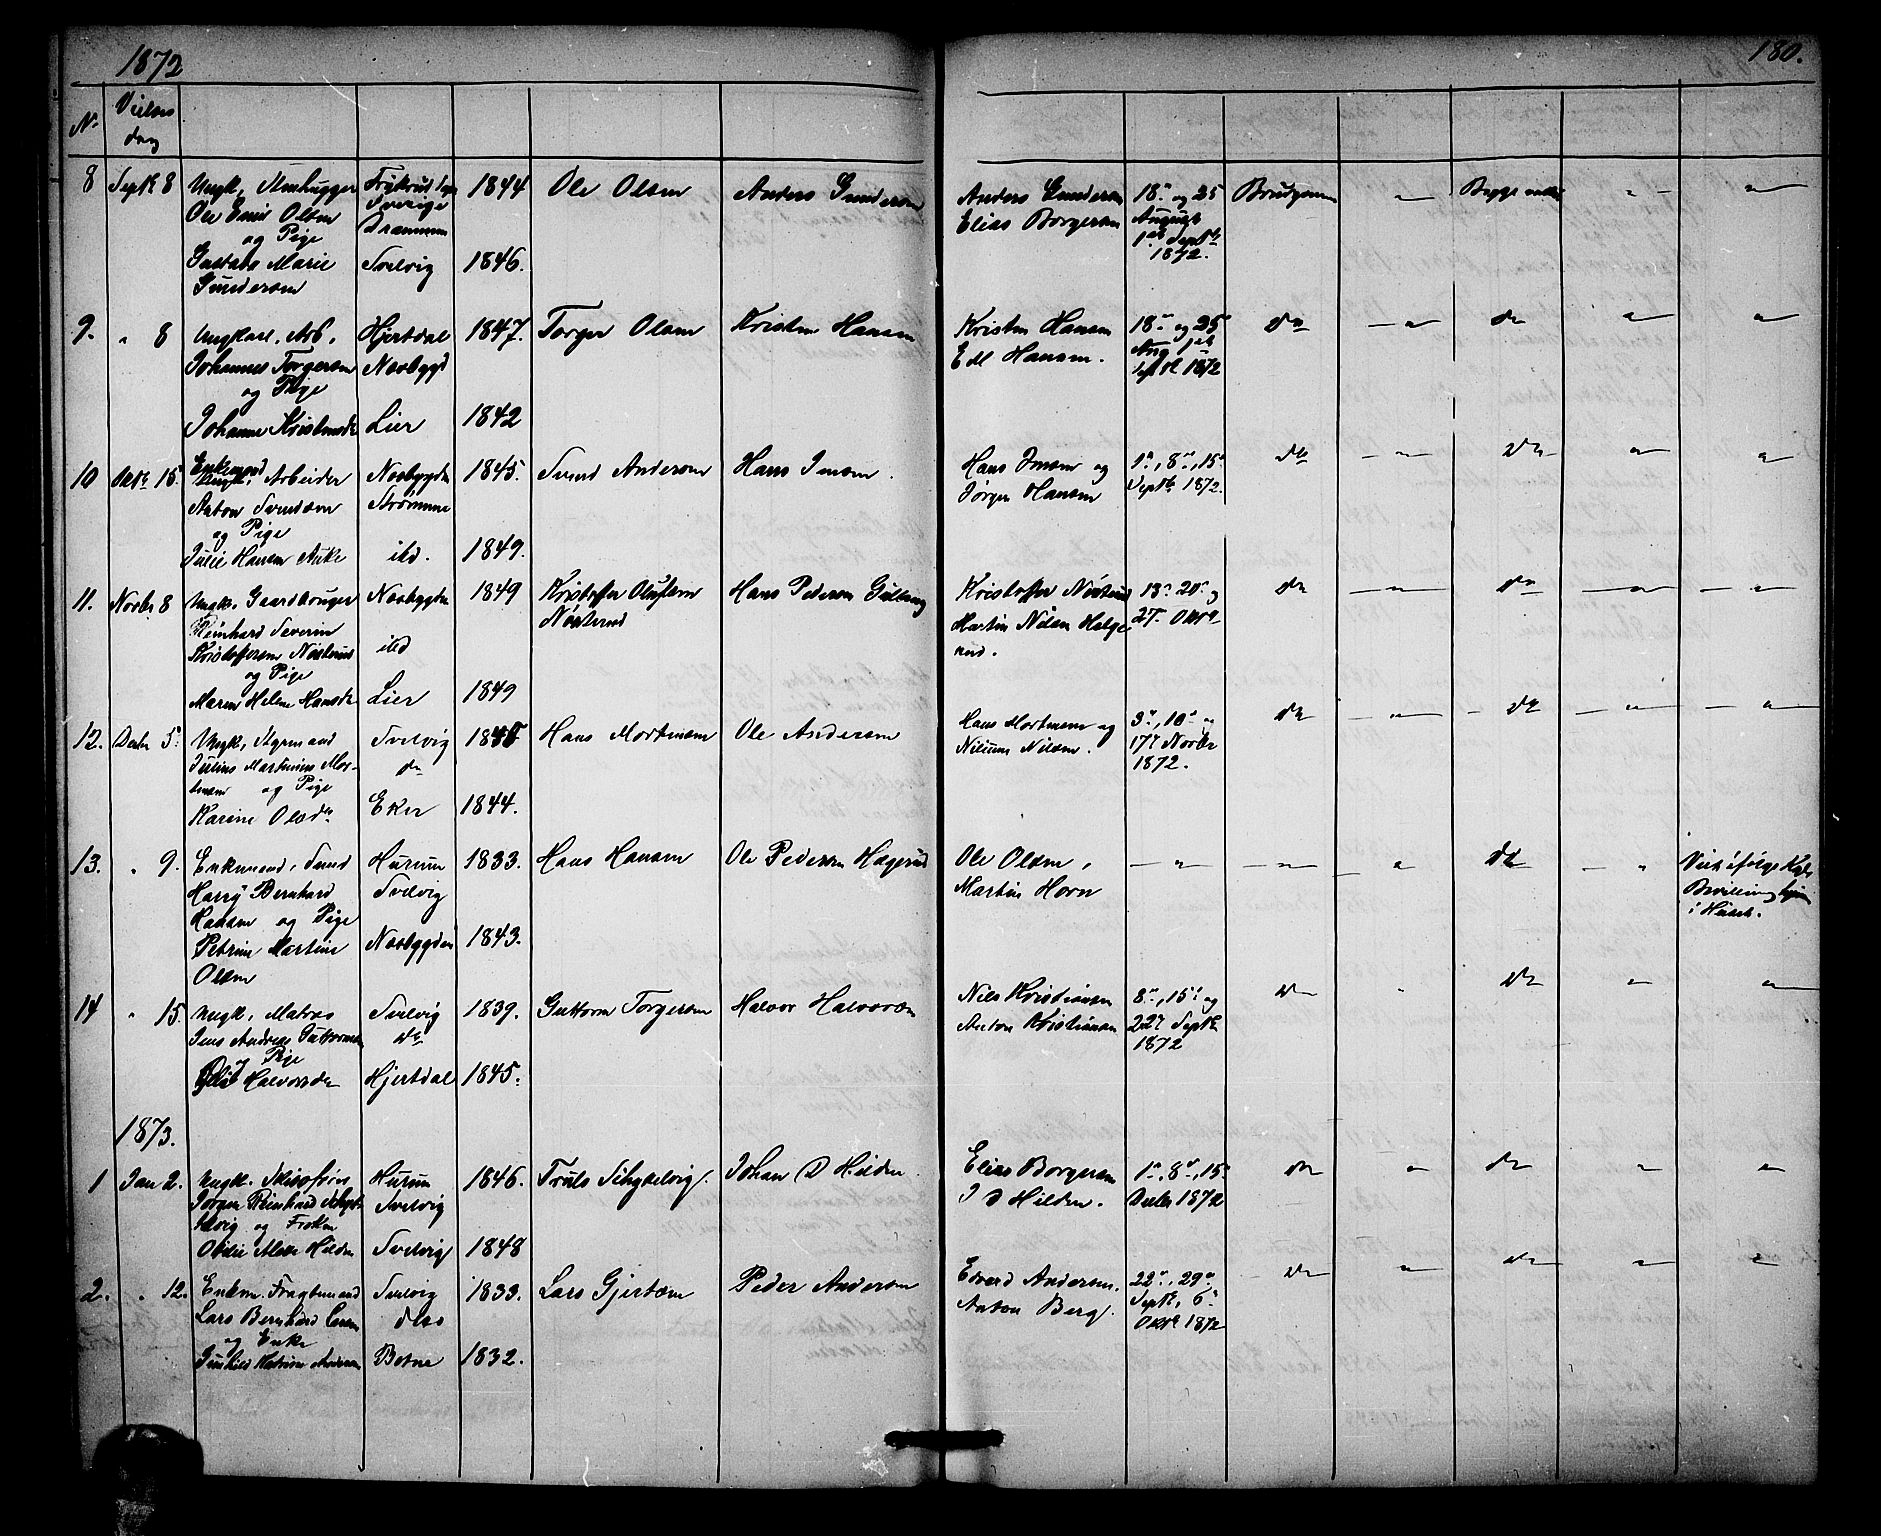 1872
180.
No.
Vielses
dag
8 Septbr 8 Ungk. Stenhugger Sverige 1844 Ole Olsen Anders Gundersen Anders Gundersen 18de og 25 Brudgommen " Begge " "
Ole Emil Olsen Drammen Elias Borgersen August
og Pige 1ste Septbr
Gustava Marie Svelvig 1846. 1872.
Gundersen
9. " 8 Ungkarl. Arb. Hjertdal 1847. Torger Olsen Kristen Hansen Kristen Hansen 18de og 25de do " do " "
Johannes Torgersen Nesbygd Edl Hansen. Aug 1ste
og Pige Septbr 1872
Johanne Kristensdr Lier 1842
10 15. Enkemand
Ungk. Arbeider Nesbygden 1845. Svend Andersen Hans Jensen. Hans Jensen og 1ste, 8de, 15de do " do " "
Anton Svendsen Strømmen Jørgen Hansen Septbr 1872.
og Pige
Julie Hansen ibd. 1849.
11. Novbr 8 Ungk. Gaardbruger Nesbygden 1849 Kristoffer Olufsen Hans Pedersen Kristoffer Nøsterud 13de 20de og do " do " "
Reinhard Severin ibd Nøsterud Martin Nilsen Helge- 27. Oktbr
Kristoffersen Nøsterud rud.
og Pige
Maren Helene Hansdr Lier 1849
12. Decbr 5. Ungk, Styrmand Svelvig Hans Mortensen Ole Andersen Hans Mortensen og 3de, 10de og do " do " "
Julius Martinius Mor- do Nilsen. 17de Novbr
tensen og Pige 1872.
Karine Olsdr Eker 1844.
13. " 9. Enkemand, Hurum 1833. Hans Hansen Ole Pedersen Hagerud Ole Olsen, " " " do " Viet ifølge Kgl
Harry Bernhard Svelvig Martin Horn Bevilling
Hansen og Pige i Huset.
Petrine Martine Nesbygden 1843.
Olsen
14 " 15. Ungk. Matros Svelvig 1839. Guttorm Torgersen Halvor Halvorsen Nils Kristiansen 8de, 15de og do " do " "
Jens Andreas Guttormsen do Anton Kristiansen 22de Septbr
og Pige 1872
Halvorsdr Hjertdal 1845.
1873.
1 Jan 2. Ungk. Skibsfører Hurum 1846. Truls Johan D Hilden. Elias Borgersen 1ste, 8de, 15de do " do " "
Jørgen Reinhard Svelvig J D Hilden. Decbr 1872
og Frøken
Hilden Svelvig 1848
2. " 12. Enkem. Fragtemand Svelvig 1833. Lars Gjertsen Peder Andersen Edvard Andersen. 22de, 29de do " do " "
Lars Bernhard Larsen Anton Berg. Septbr, 6te
og Enke Oktbr 1872
Gunhild Andersen Botne 1832.